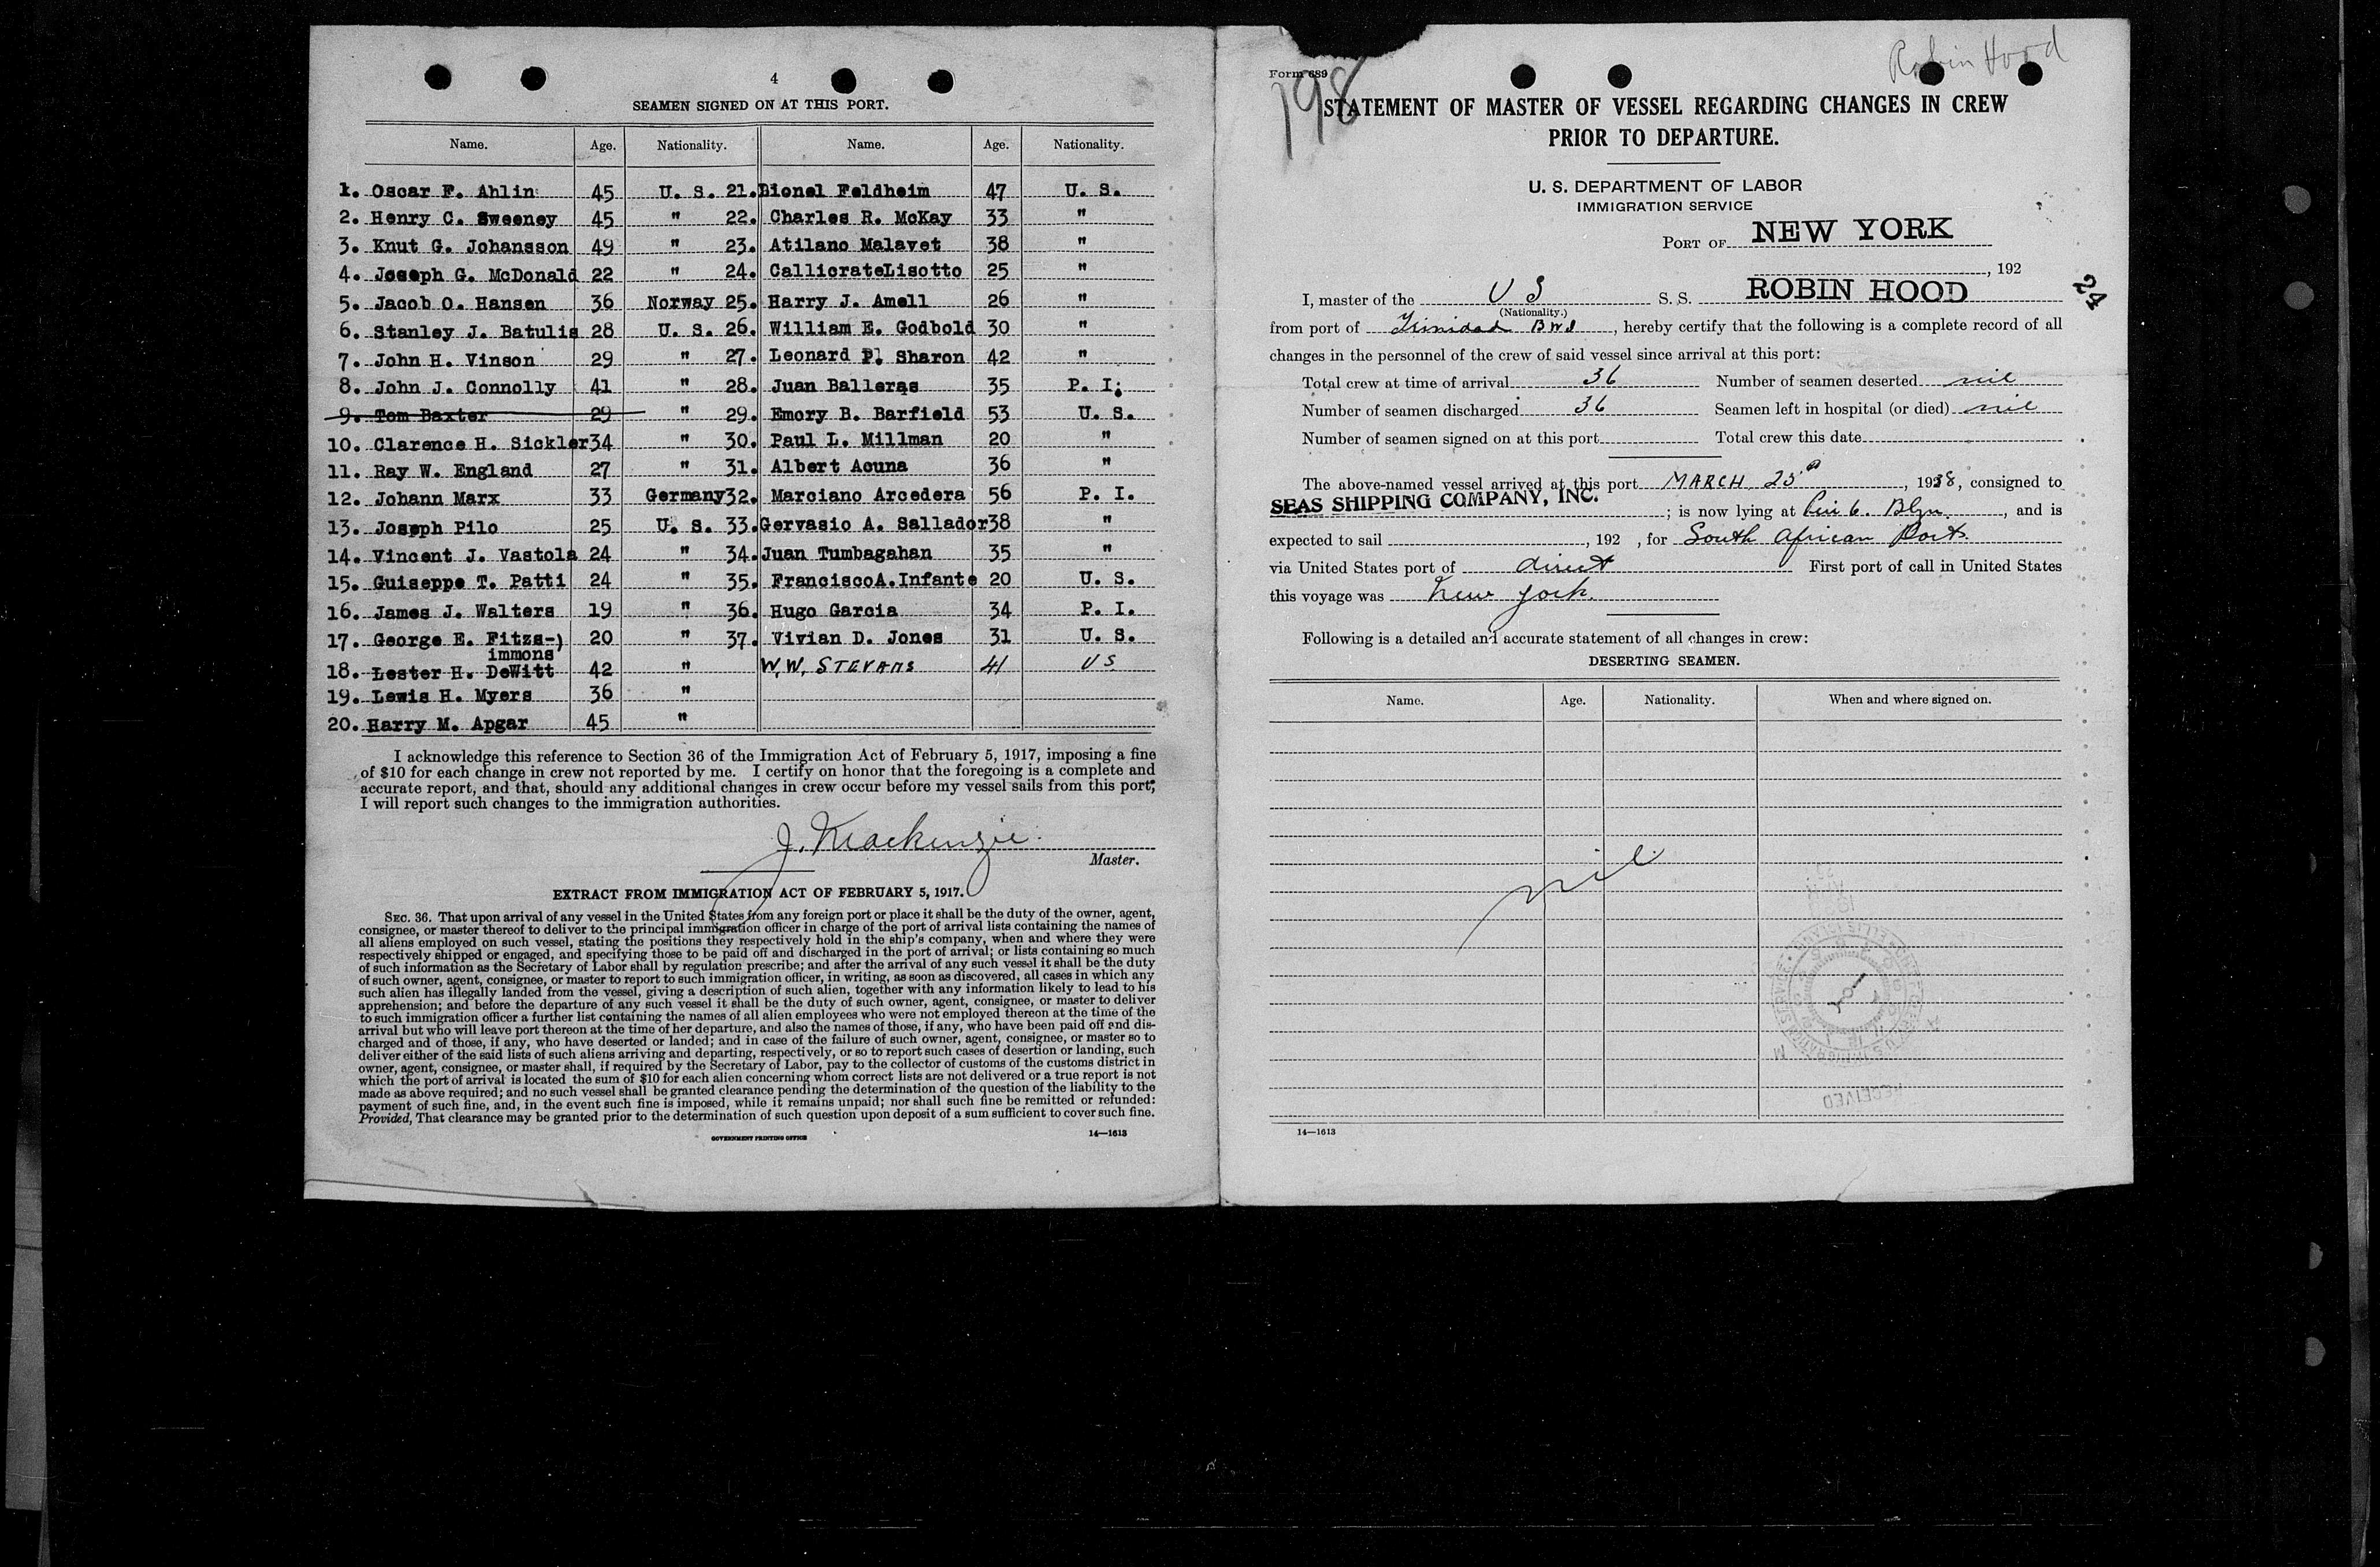 4
SEAMEN SIGNED ON AT THIS PORT.
Name. Age. Nationality. Name. Age. Nationality.
1. Oscar F. Ahlin 45 U. S. 21. Lionel Feldheim 47 U. S.
2. Henry C. Sweeney 45 " 22. Charles R. McKay 33 "
3. Knut G. Johansson 49 " 23. Atilano Malavet 38 "
4. Joseph G. McDonald 22 " 24. CallicrateLisotto 25 "
5. Jacob O. Hansen 36 Norway 25. Harry J. Amell 26 "
6. Stanley J. Batulis 28 U. S. 26. William E. Godbold 30 "
7. John H. Vinson 29 " 27. Leonard P. Sharon 42 "
8. John J. Connolly 41 " 28. Juan Balleras 35 P. I.
9. Tom Baxter 29 " 29. Emory B. Barfield 53 U. S.
10. Clarence H. Sickler 34 " 30. Paul L. Millman 20 "
11. Ray W. England 27 " 31. Albert Acuna 36 "
12. Johann Marx 33 Germany 32. Marciano Arcedera 56 P. I.
13. Joseph Pilo 25 U. S. 33. Gervasio A. Sallador 38 "
14. Vincent J. Vastola 24 " 34. Juan Tumbagahan 35 "
15. Guiseppe T. Patti 24 " 35. FranciscoA.Infante 20 U. S.
16. James J. Walters 19 " 36. Hugo Garcia 34 P. I.
17. George E. Fitzs-) 20 " 37. Vivian D. Jones 31 U. S.
immons
18. Lester H. DeWitt 42 " W.W. STEVANS 41 US
19. Lewis H. Myers 36 "
20. Harry M. Apgar 45 "
I acknowledge this reference to Section 36 of the Immigration Act of February 5, 1917, imposing a fine
of $10 for each change in crew not reported by me. I certify on honor that the foregoing is a complete and
accurate report, and that, should any additional changes in crew occur before my vessel sails from this port,
I will report such changes to the immigration authorities.
J. Mackenzie
Master.
EXTRACT FROM IMMIGRATION ACT OF FEBRUARY 5, 1917.
SEC. 36. That upon arrival of any vessel in the United States from any foreign port or place it shall be the duty of the owner, agent,
consignee, or master thereof to deliver to the principal immigration officer in charge of the port of arrival lists containing the names of
all aliens employed on such vessel, stating the positions they respectively hold in the ship's company, when and where they were
respectively shipped or engaged, and specifying those to be paid off and discharged in the port of arrival; or lists containing so much
of such information as the Secretary of Labor shall by regulation prescribe; and after the arrival of any such vessel it shall be the duty
of such owner, agent, consignee, or master to report to such immigration officer, in writing, as soon as discovered, all cases in which any
such alien has illegally landed from the vessel, giving a description of such alien, together with any information likely to lead to his
apprehension; and before the departure of any such vessel it shall be the duty of such owner, agent, consignee, or master to deliver
to such immigration officer a further list containing the names of all alien employees who were not employed thereon at the time of the
arrival but who will leave port thereon at the time of her departure, and also the names of those, if any, who have been paid off and dis-
charged and of those, if any, who have deserted or landed; and in case of the failure of such owner, agent, consignee, or master so to
deliver either of the said lists of such aliens arriving and departing, respectively, or so to report such cases of desertion or landing, such
owner, agent, consignee, or master shall, if required by the Secretary of Labor, pay to the collector of customs of the customs district in
which the port of arrival is located the sum of $10 for each alien concerning whom correct lists are not delivered or a true report is not
made as above required; and no such vessel shall be granted clearance pending the determination of the question of the liability to the
payment of such fine, and, in the event such fine is imposed, while it remains unpaid; nor shall such fine be remitted or refunded:
Provided, That clearance may be granted prior to the determination of such question upon deposit of a sum sufficient to cover such fine.
GOVERNMENT PRINTING OFFICE 14—1613
Robin Hood
Form 689
198
STATEMENT OF MASTER OF VESSEL REGARDING CHANGES IN CREW
PRIOR TO DEPARTURE.
U. S. DEPARTMENT OF LABOR
IMMIGRATION SERVICE
PORT OF NEW YORK
, 192
24
I, master of the U S S. S. ROBIN HOOD
(Nationality.)
from port of Trinidad BWI, hereby certify that the following is a complete record of all
changes in the personnel of the crew of said vessel since arrival at this port:
Total crew at time of arrival 36 Number of seamen deserted nil
Number of seamen discharged 36 Seamen left in hospital (or died) nil
Number of seamen signed on at this port Total crew this date
The above-named vessel arrived at this port MARCH 25, 1938, consigned to
SEAS SHIPPING COMPANY, INC.; is now lying at Pier 6. Blyn., and is
expected to sail , 192 , for South African Ports
via United States port of direct First port of call in United States
this voyage was New York.
Following is a detailed and accurate statement of all changes in crew:
DESERTING SEAMEN.
Name. Age. Nationality. When and where signed on.
nil
RECEIVED
14—1613